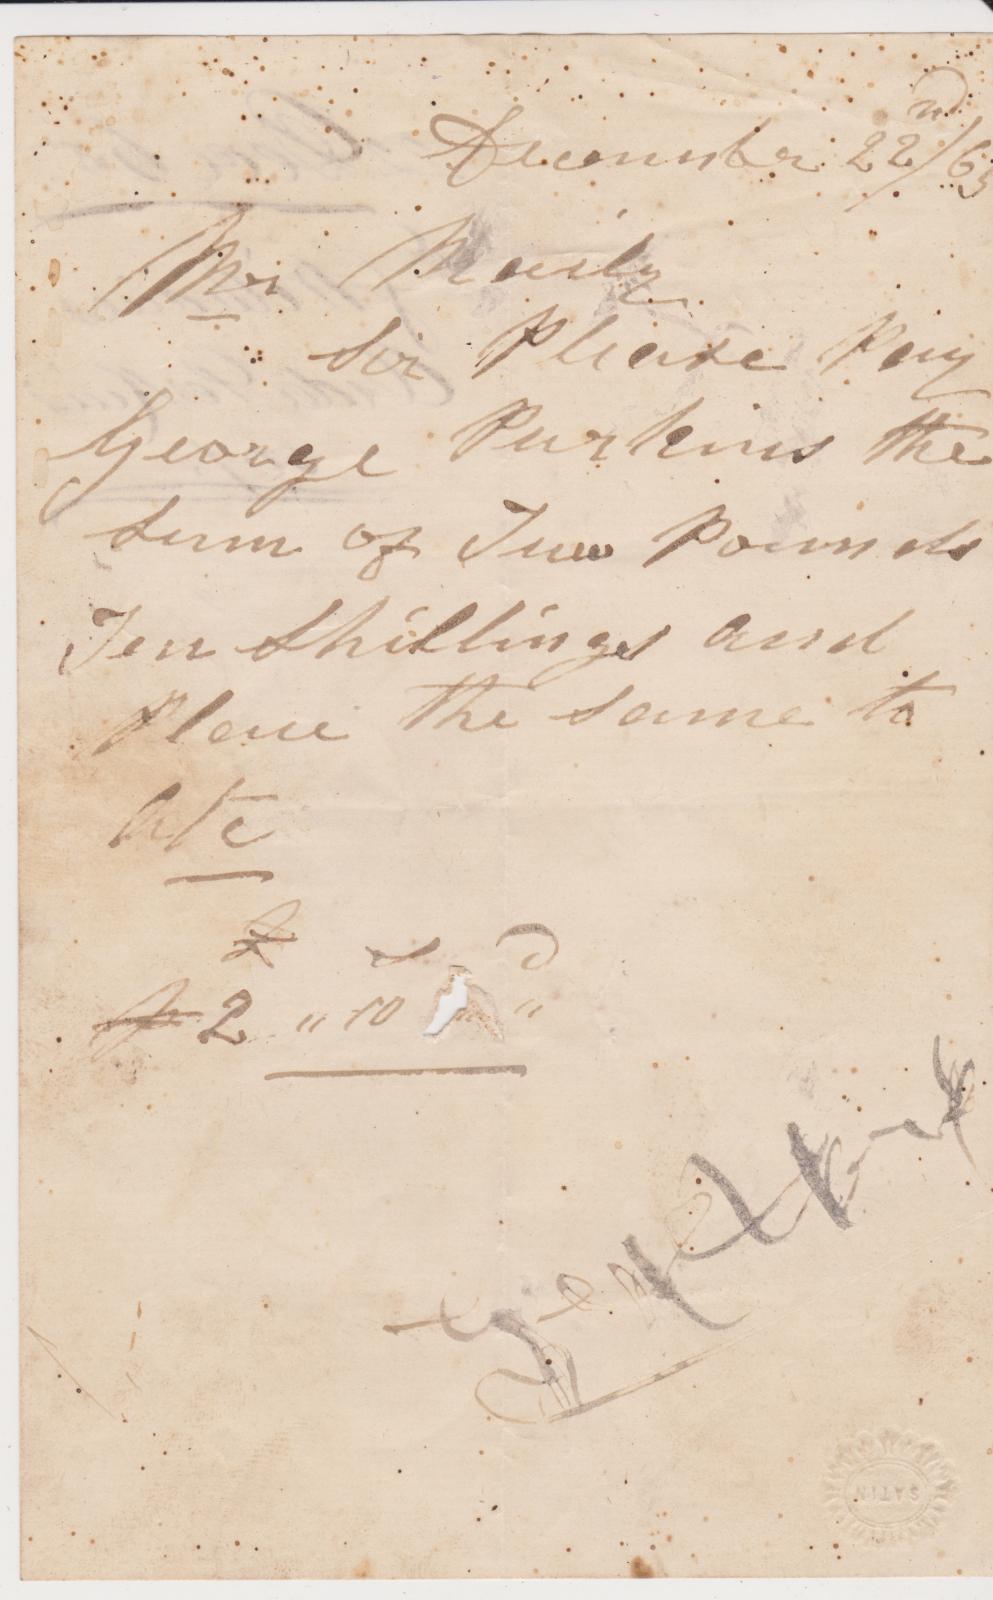 December 22nd/63
Mr
Sir Please Pay
George Purkins the
Sum of Two Pounds
Ten Shillings and
Place the same to
a/c
£ s d
2 " 10 "
SATIN